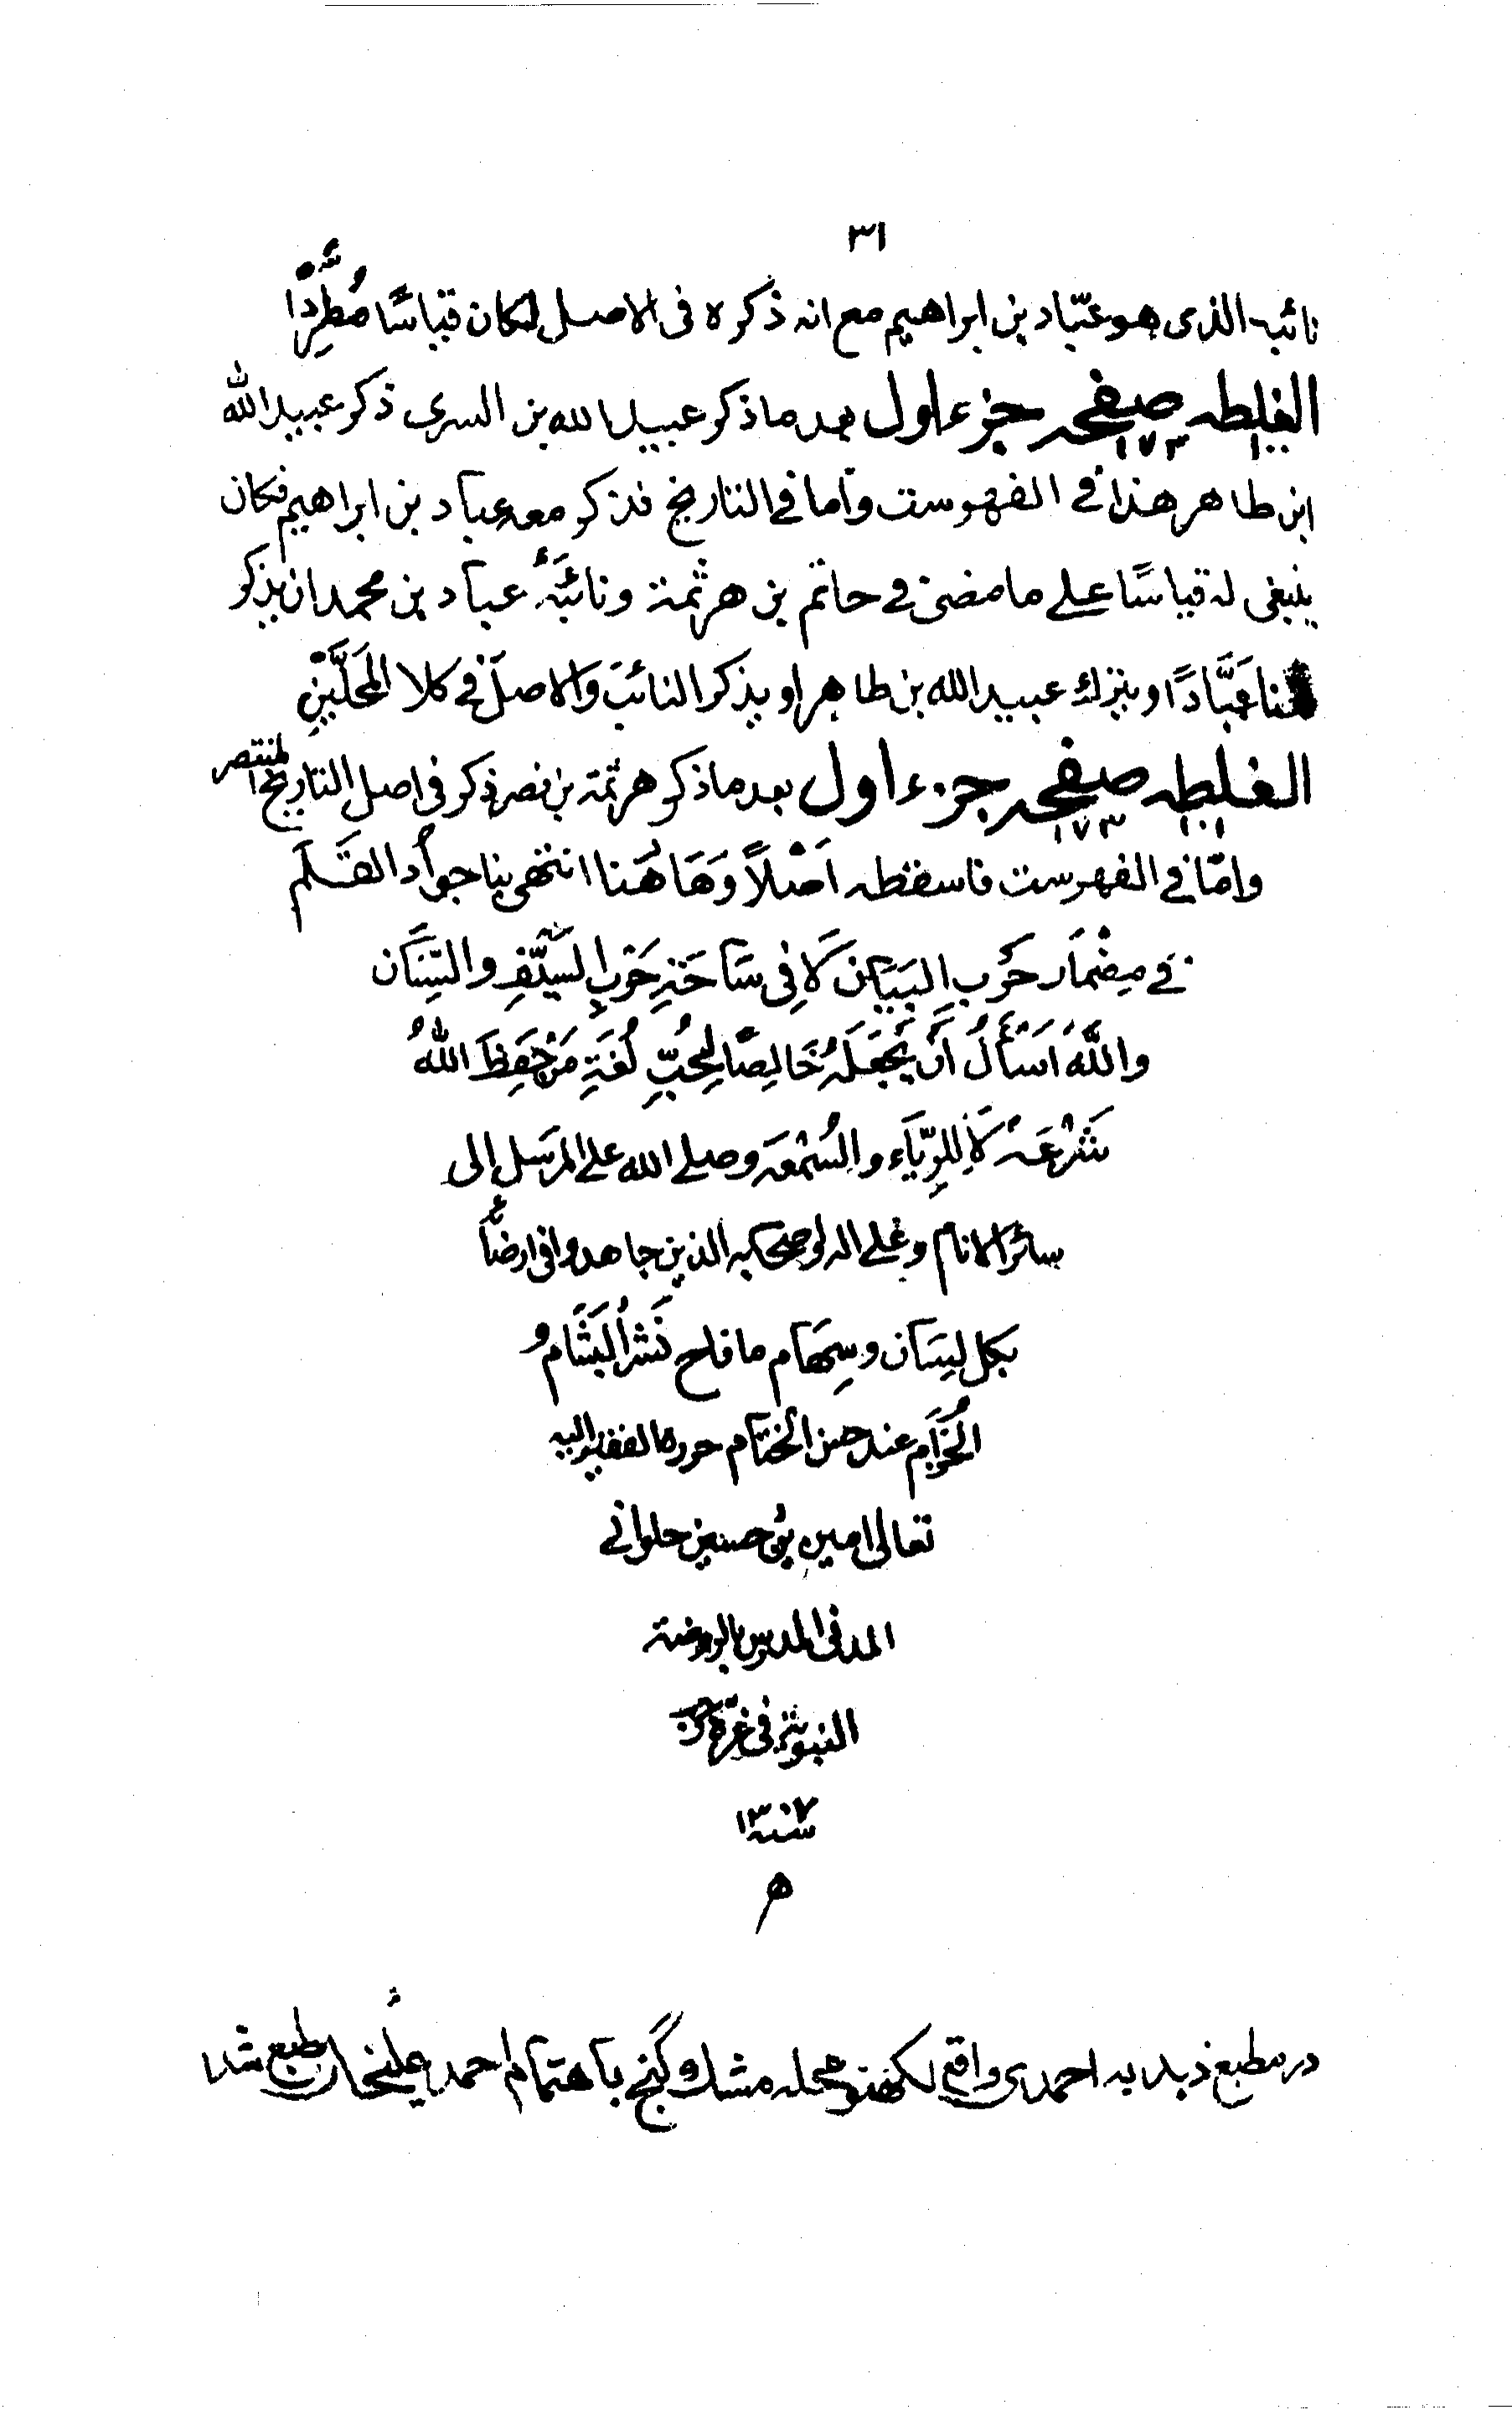 ٣١
نائبه الذى هو عبّاد بن ابراهيم مع انه ذكره فى الاصل لكان قياسًا مُطَّرِدًا
الغلطه ١٠٠ صفحه ١٧٣ جزء اول بعد ما ذكر عبيد الله بن السرى ذكر عبيد الله
ابن طاهر هذا فے الفهرست واما فے التاريخ فذكر معه عباد بن ابراهيم فكان
ينبغى له قياسًا علے ما مضى فے حاتم بن هرثمة ونائبَهُ عباد بن محمد ان يذكر
هنا عَبَّادًا ويترك عبيد الله بن طاهر او يذكر النائبَ والاصلَ فے كلا المَحَلَّيْنِ
الغلطه ١٠١ صفحه ١٧٣ جزء اول بعد ما ذكر هرثمة بن نصر ذكر فى اصل التاريخ المنتصر
وامّا فے الفهرست فاسقطه اَصْلاً وَهَا هُنا انتهى بنا جوادُ القَلَم
فے مِضْمَار حَرْبِ البَيَان لَا فِى سَاحَةِ حَرْبِ السَّيْفِ والسِّنَان
واللّٰهَ اَسْأَلُ أَنْ يَجْعَلَهُ خَالِصًا لِحُبِّ لُغَةِ مَنْ حَفِظَ اللّٰهُ
شَرْعَهٗ لَا لِلرِّيَاء والسُمْعَه وصلے الله علے المرسَل الى
سائر الانام وعلے اله وصحبه الذين جاهدوا فى ارضاه
بكل لِسَان وسِهَام ما فاح نَشْرُ البَشَام و
الخُزَام عند حسن الختام حرره الفقير اليه
تعالى امين بن حسن حلوانے
المدنى المدرس بالروضة
النبوية فى غرة
سنه ١٣٠٧
ھ
در مطبع دبدبه احمدى واقع لكهنو محله مشك گنج باهتمام احمد عليخان طبع شد